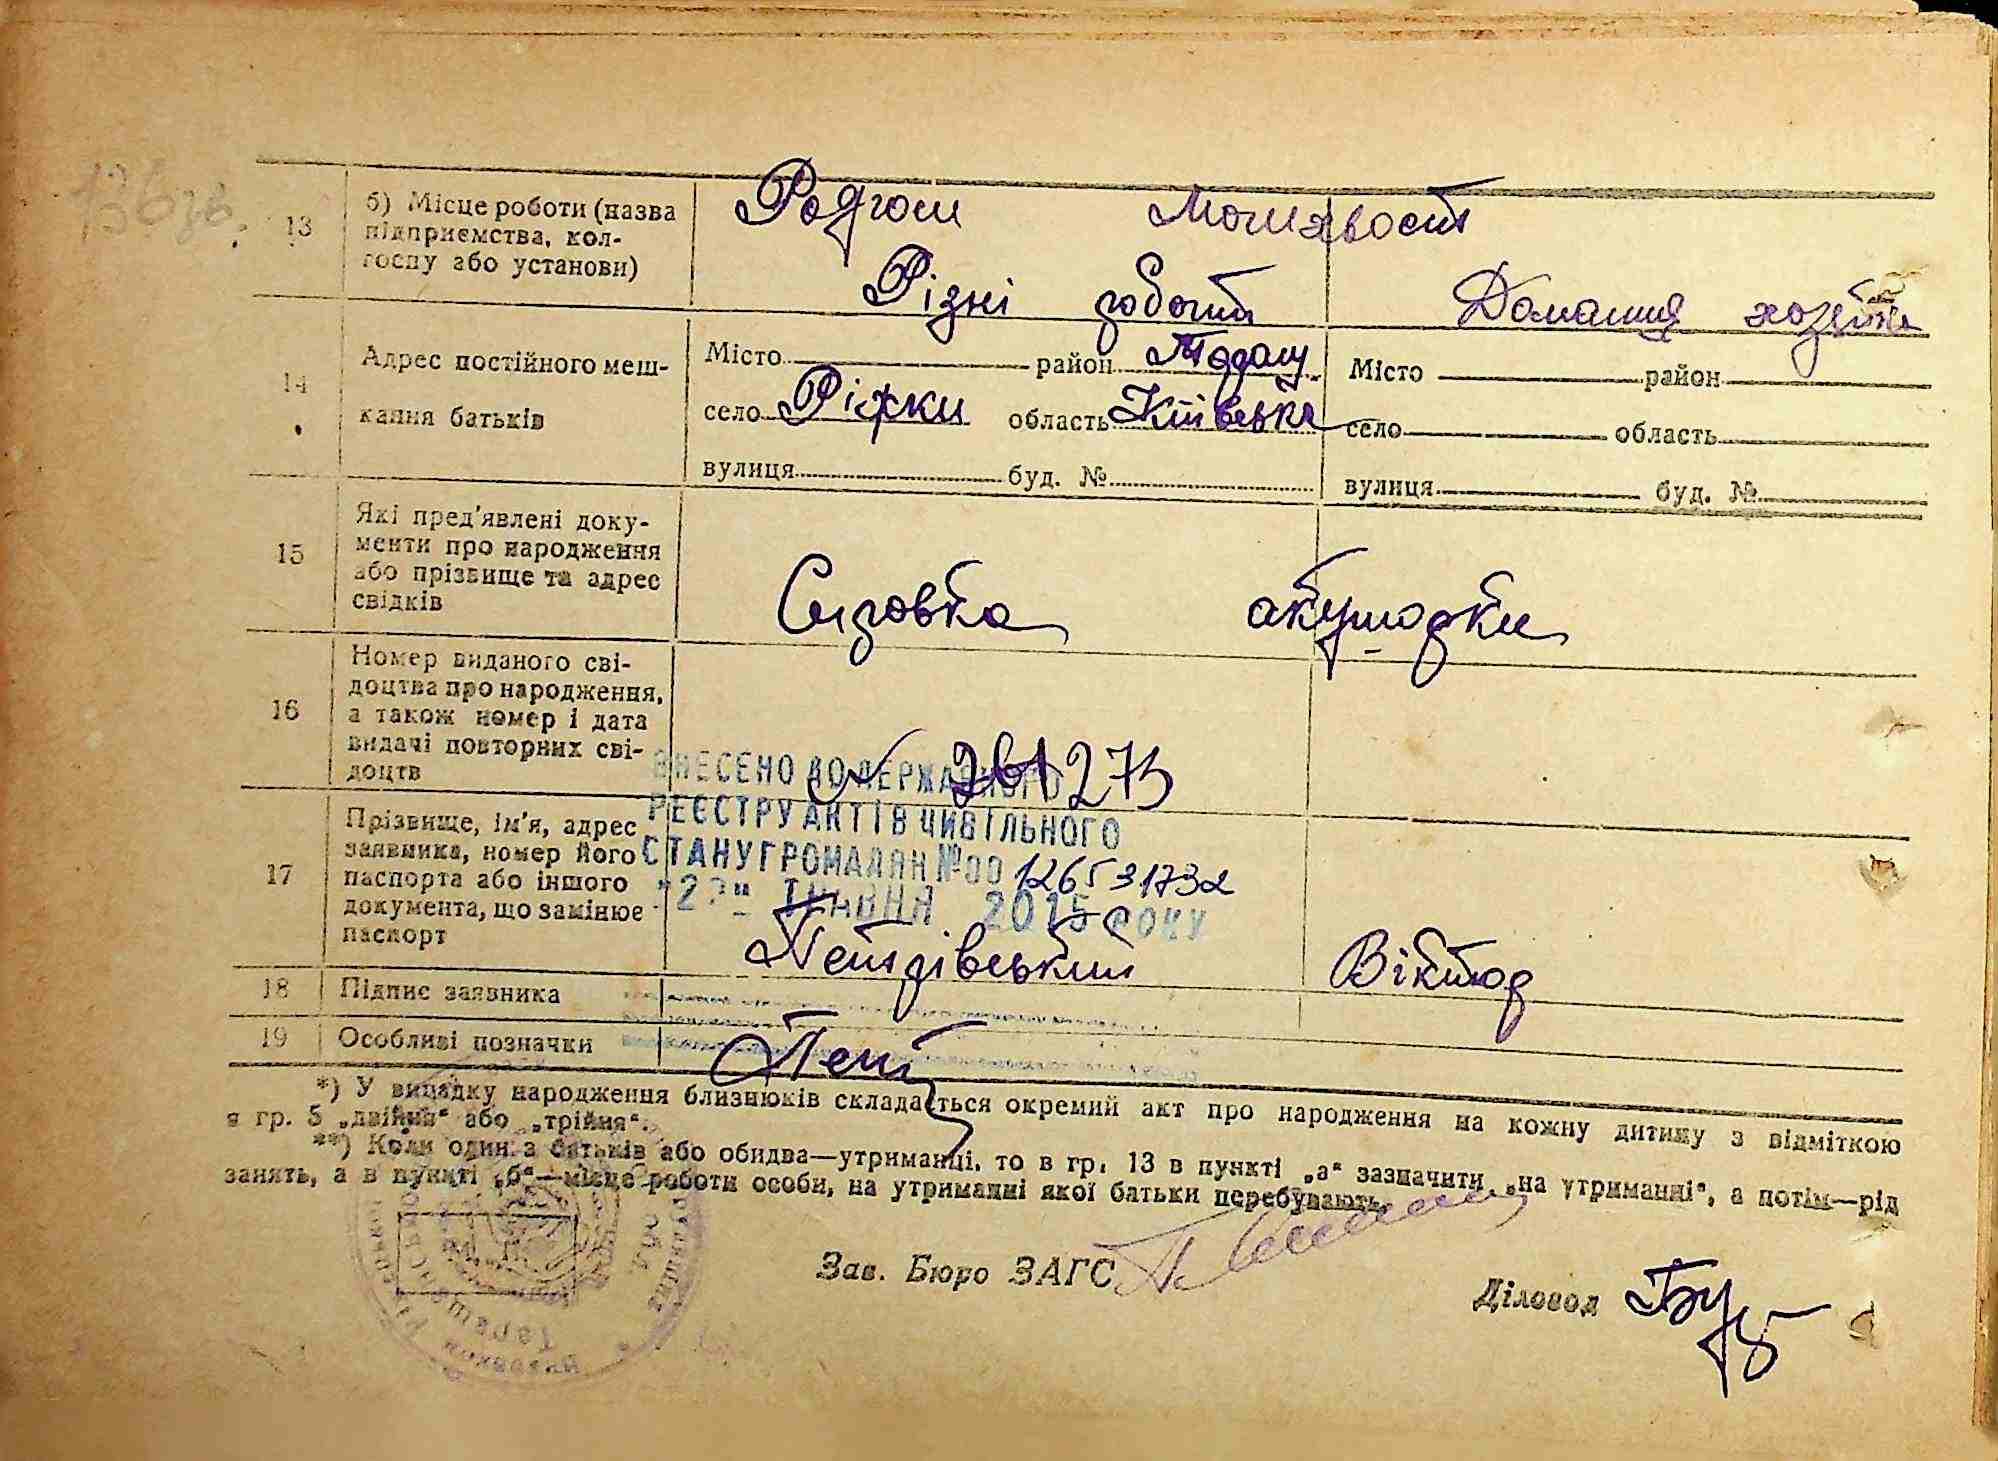 136зв.
13 б) Місце роботи (назва підприємства, кол-госпу або установи) Радгосп
Різні робочий Домашня хозяйка
14 Адрес постійного меш-кання батьків
Місто район Місто район
село Ріжки область Київська село область
вулиця буд. № вулиця буд. №
15 Які пред'явлені доку-
менти про народження
або прізвище та адрес
свідків
акушорки
16 Номер виданого сві-
доцтва про народження,
а також номер і дата
видачі повторних сві-
доцтв
273
ВНЕСЕНО ДО ДЕРЖАВНОГО
РЕЄСТРУ АКТІВ ЦИВІЛЬНОГО
СТАНУ ГРОМАДЯН №00126531732
ТРАВНЯ 2015 РОКУ
17 Прізвище, ім'я, адрес
заявника, номер його
паспорта або іншого
документа, що замінює
паспорт
Петрівський Віктор
18 Підпис заявника
19 Особливі позначки
*) У випадку народження близнюків складається окремий акт про народження на кожну дитину з відміткою
в гр. 5 „двійня“ або „трійня“.
**) Коли один з батьків або обидва—утриманці, то в гр. 13 в пункті „а“ зазначити „на утриманні“, а потім—рід
занять, а в пункті „б“—місце роботи особи, на утриманні якої батьки перебувають.
М. П.
Зав. Бюро ЗАГС
Діловод